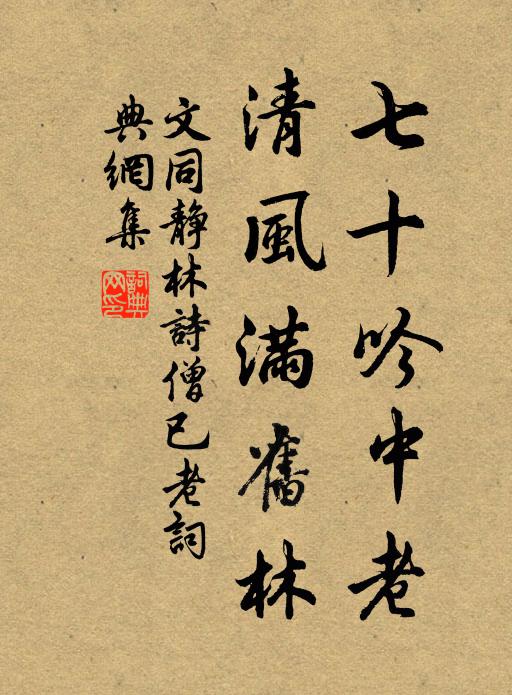 七十吟中老
清風滿舊林
文同靜林詩僧已老詞
典網集
詞典
网印